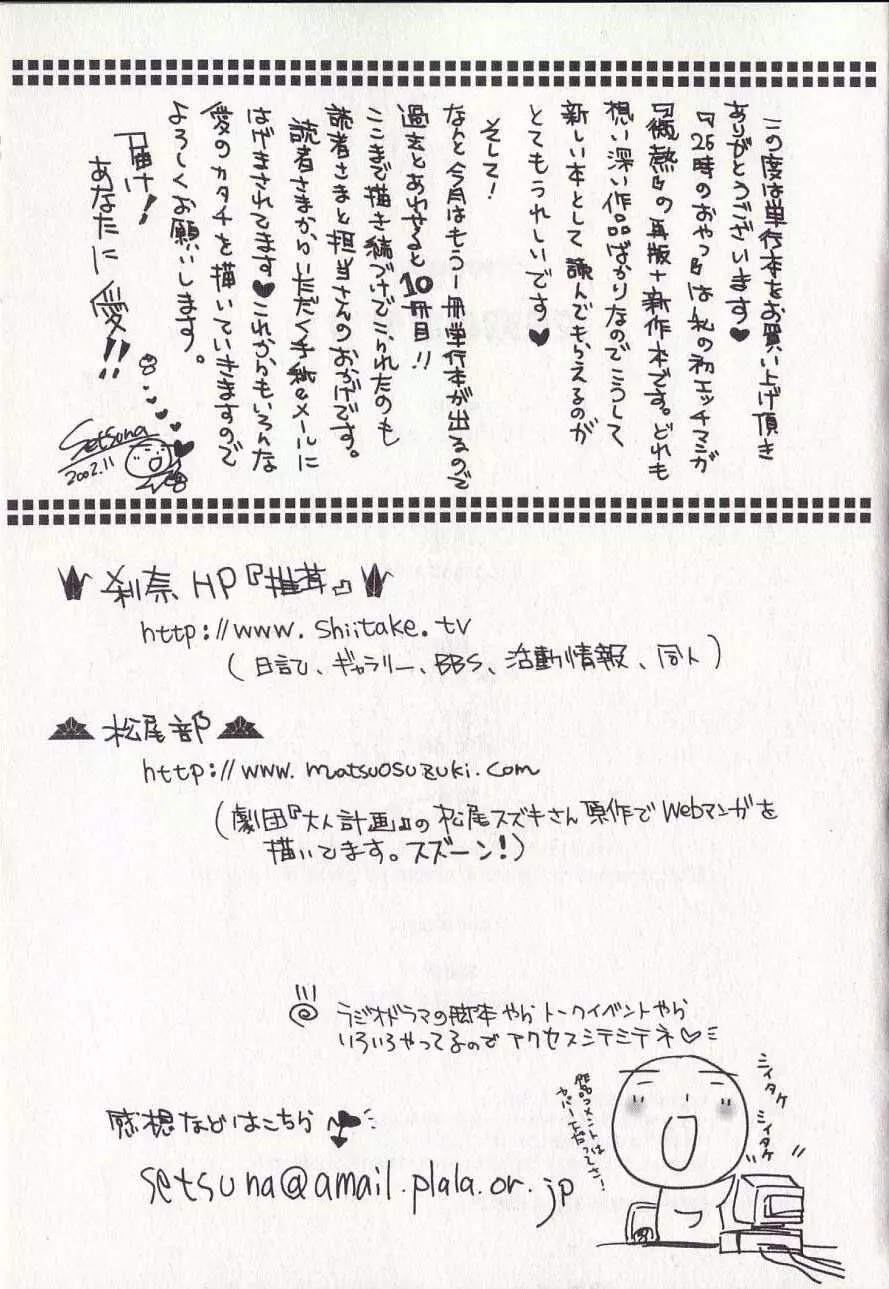 この度は単行本をお買い上げ頂き
ありがとうございます♥
『26時のおやつ』は私の初エッチマンガ
『微熱』の再版+新作本です。どれも
想い深い作品ばかりなのでこうして
新しい本として読んでもらえるのが
とてもうれしいです♥
そして!
なんと今月はもう一冊単行本が出るので
過去とあわせると10冊目!!
ここまで描き続けてこられたのも
読者さまと担当さんのおかげです。
読者さまからいただく手紙やeメールに
はげまされてます♥これからもいろんな
愛のカタチを描いていきますので
よろしくお願いします。
届け!
あなたに愛!!
Setsuna
2002.11
刹奈HP『椎茸』
http://www.shiitake.tv
(日記、ギャラリー、BBS、活動情報、同人)
松尾部
http://www.matsuosuzuki.com
(劇団『大人計画』の松尾スズキさん原作でWebマンガを
描いてます。スズーン!)
ラジオドラマの脚本やらトークイベントやら
いろいろやってるのでアクセスシテミテネ♡
シイタケ
シイタケ
作品コメントは
カバー下を見て下さい!
感想などはこちら
setsuna@amail.plala.or.jp